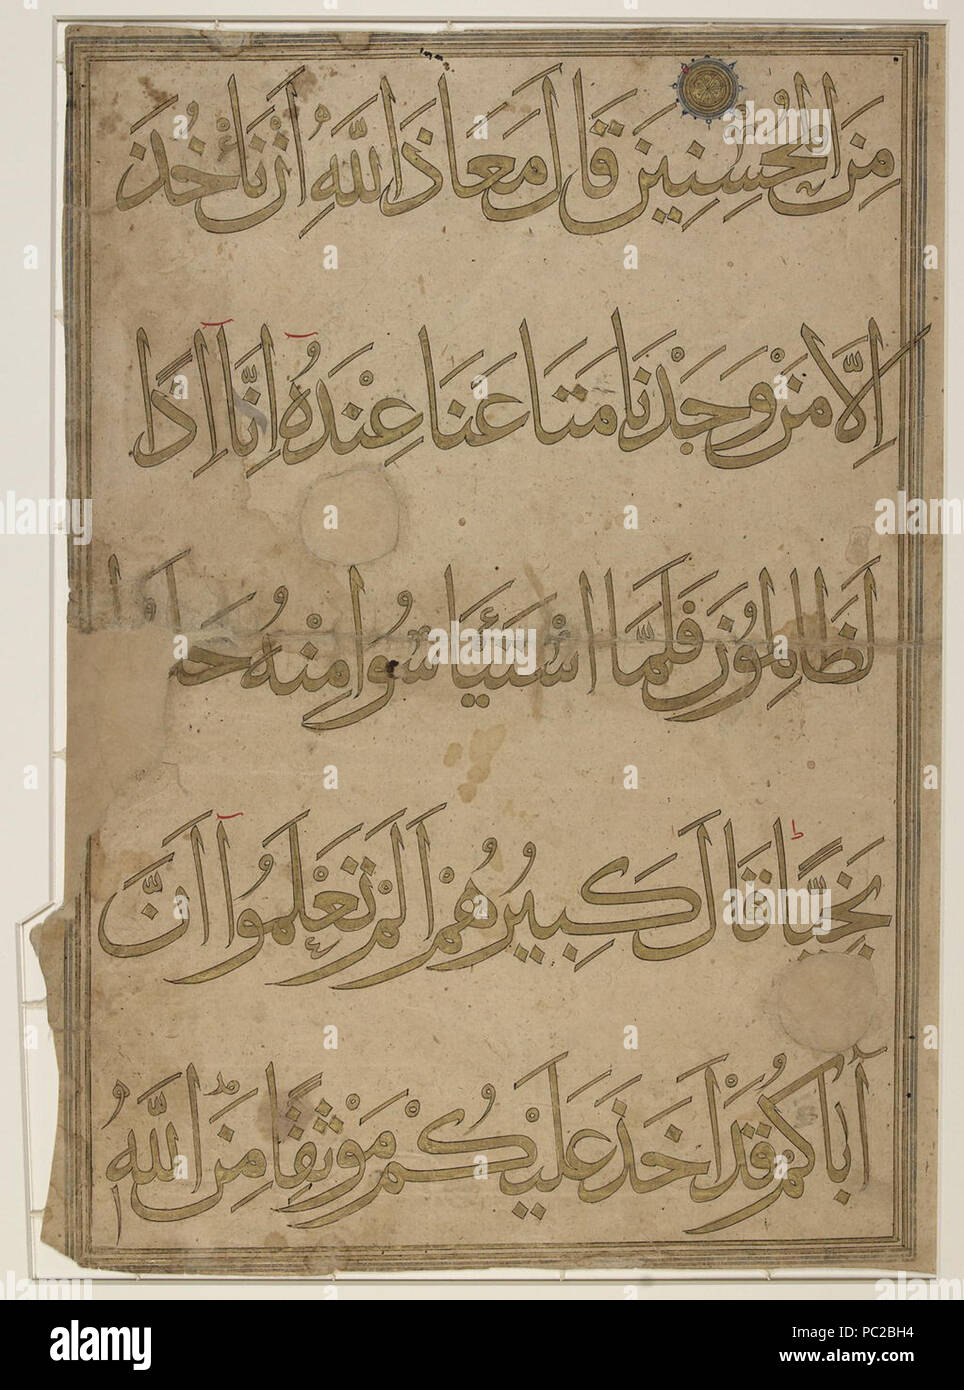 مِنَ الْمُحْسِنِينَ قَالَ مَعَاذَ اللَّهِ أَنْ نَأْخُذَ
اِلَّا مَنْ وَجَدْنَا مَتَاعَنَا عِنْدَهُ اِنَّا اِذًا
لَظَالِمُونَ فَلَمَّا اسْتَيْأَسُوا مِنْهُ خَلَصُوا
نَجِيًّا قَالَ كَبِيرُهُمْ اَلَمْ تَعْلَمُوا اَنَّ
اَبَاكُمْ قَدْ اَخَذَ عَلَيْكُمْ مَوْثِقًا مِنَ اللَّهِ
alamy
Image ID: PC2BH4
www.alamy.com